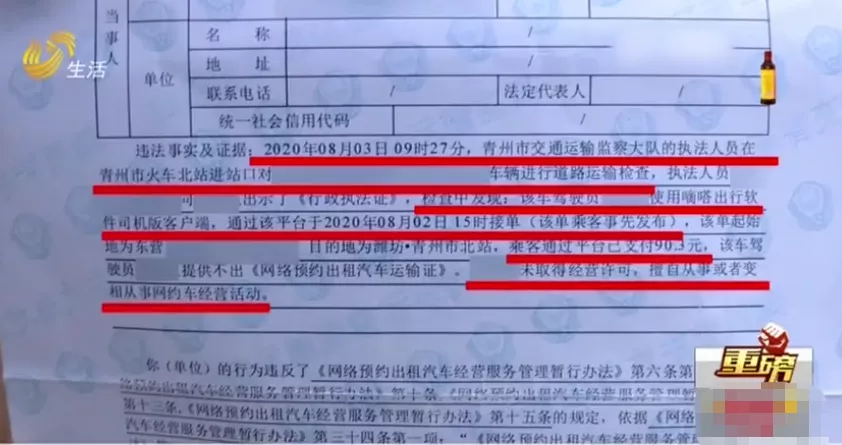 生活
当事人
单位
名称 /
地址 /
联系电话 / 法定代表人 /
统一社会信用代码 /
违法事实及证据：2020年08月03日09时27分，青州市交通运输监察大队的执法人员在
青州市火车北站进站口对 车辆进行道路运输检查，执法人员
司 出示了《行政执法证》，检查中发现：该车驾驶员 使用嘀嗒出行软
件司机版客户端，通过该平台于2020年08月02日15时接单（该单乘客事先发布），该单起始
地为东营 目的地为潍坊·青州市北站，乘客通过平台已支付90.3元，该车驾
驶员 提供不出《网络预约出租汽车运输证》。 未取得经营许可，擅自从事或者变
相从事网约车经营活动。
你（单位）的行为违反了《网络预约出租汽车经营服务管理暂行办法》第六条第
《网络预约出租汽车经营服务管理暂行办法》第十条、《网络预约出租汽车经营服务管理暂行办法》
第十三条、《网络预约出租汽车经营服务管理暂行办法》第十五条的规定，依据《网络
预约出租汽车经营服务管理暂行办法》第三十四条第一项，“《网络预约出租汽车经
重磅